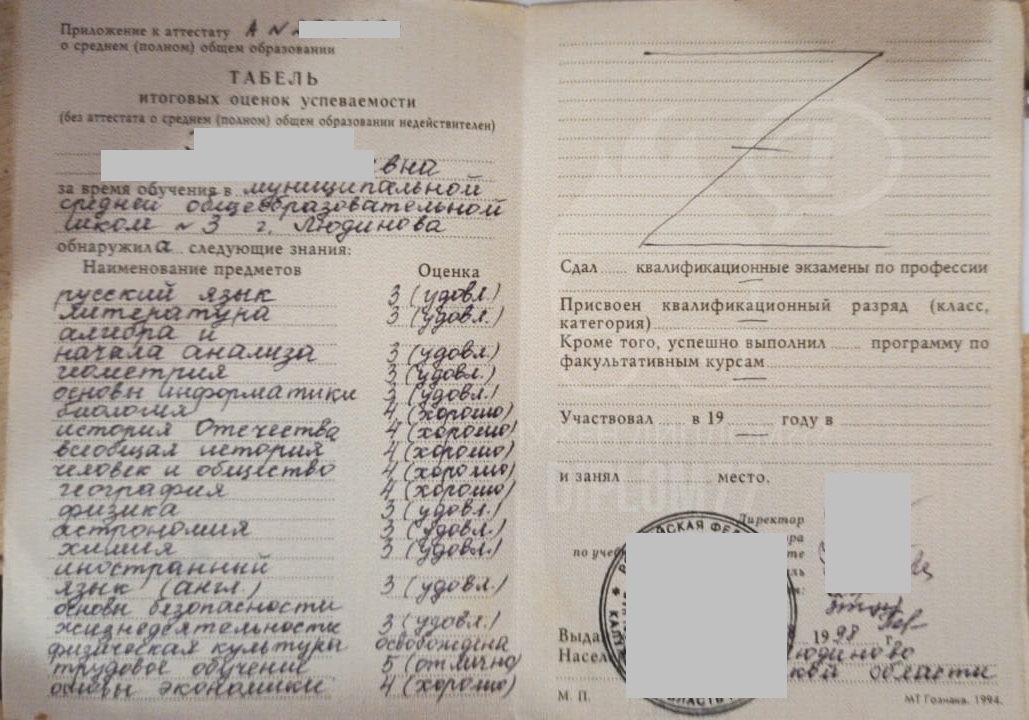 Приложение к аттестату А №
о среднем (полном) общем образовании
ТАБЕЛЬ
итоговых оценок успеваемости
(без аттестата о среднем (полном) общем образовании недействителен)
вна
за время обучения в муниципальной
средней общеобразовательной
школе №3 г. Людинова
обнаружила следующие знания:
Наименование предметов Оценка
русский язык 3 (удовл.)
литература 3 (удовл.)
алгебра и
начала анализа 3 (удовл.)
геометрия 3 (удовл.)
основы информатики 3 (удовл.)
биология 4 (хорошо)
история Отечества 4 (хорошо)
всеобщая история 4 (хорошо)
человек и общество 4 (хорошо)
география 4 (хорошо)
физика 3 (удовл.)
астрономия 3 (удовл.)
химия 3 (удовл.)
иностранный
язык (англ.) 3 (удовл.)
основы безопасности
жизнедеятельности 3 (удовл.)
физическая культура освобождена
трудовое обучение 5 (отлично)
основы экономики 4 (хорошо)
Сдал ..... квалификационные экзамены по профессии
Присвоен квалификационный разряд (класс,
категория)
Кроме того, успешно выполнил ...... программу по
факультативным курсам
Участвовал ..... в 19 ........ году в
и занял ........ место.
DIPLOM77
Директор
по учеб
Выда 1998 го
Насел юдиново
кой области
М. П.
МТ Гознака. 1994.